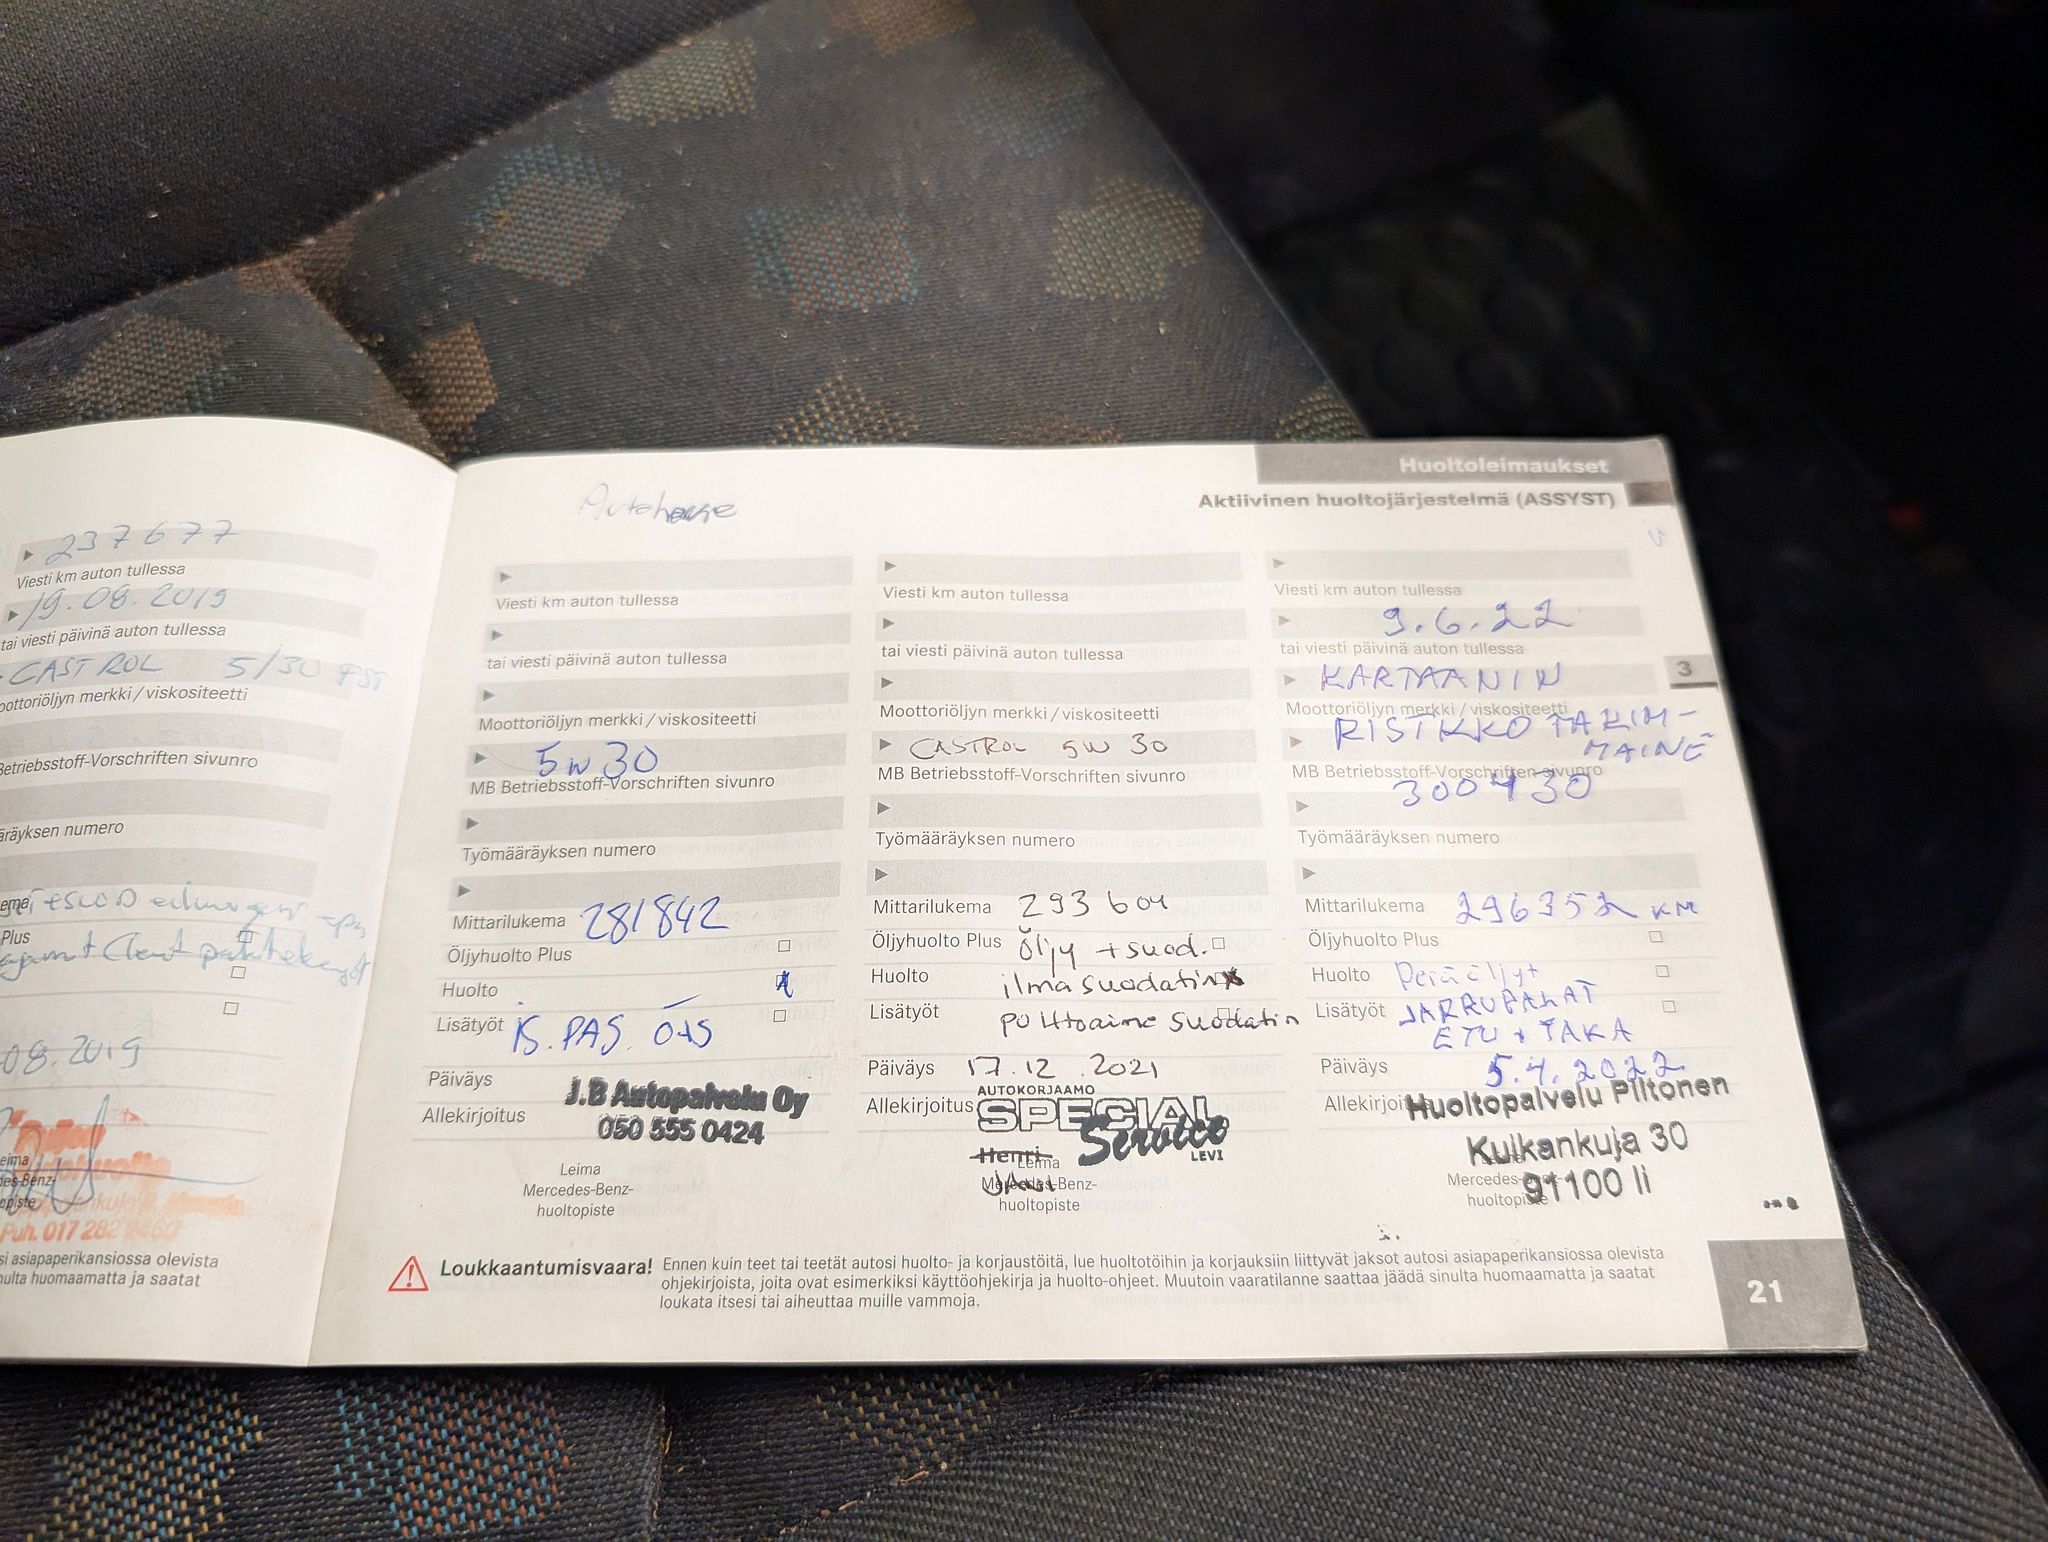 237677
Viesti km auton tullessa
19.08.2019
tai viesti päivinä auton tullessa
CASTROL 5/30
oottoriöljyn merkki / viskositeetti
Betriebsstoff-Vorschriften sivunro
äräyksen numero
Plus
08.2019
Puh. 017 282
si asiapaperikansiossa olevista
nulta huomaamatta ja saatat
Huoltoleimaukset
Aktiivinen huoltojärjestelmä (ASSYST)
3
Viesti km auton tullessa
tai viesti päivinä auton tullessa
Moottoriöljyn merkki / viskositeetti
5w30
MB Betriebsstoff-Vorschriften sivunro
Työmääräyksen numero
Mittarilukema 281842
Öljyhuolto Plus
Huolto
Lisätyöt
Päiväys
Allekirjoitus
J.B Autopalvelu Oy
050 555 0424
Leima
Mercedes-Benz-
huoltopiste
Viesti km auton tullessa
tai viesti päivinä auton tullessa
Moottoriöljyn merkki / viskositeetti
CASTROL 5W 30
MB Betriebsstoff-Vorschriften sivunro
Työmääräyksen numero
Mittarilukema 293604
Öljyhuolto Plus öljy + suod.
Huolto ilmasuodatin
Lisätyöt polttoaine suodatin
Päiväys 17.12.2021
Allekirjoitus
AUTOKORJAAMO
SPECIAL
Service
LEVI
Henri
JANI
Leima
Mercedes-Benz-
huoltopiste
Viesti km auton tullessa
9.6.22
tai viesti päivinä auton tullessa
KARTAANIN
Moottoriöljyn merkki / viskositeetti
RISTIKKO TAKIM-
MAINE
MB Betriebsstoff-Vorschriften sivunro
300430
Työmääräyksen numero
Mittarilukema 296352 KM
Öljyhuolto Plus
Huolto Peräöljyt
Lisätyöt JARRUPALAT
ETU + TAKA
Päiväys 5.4.2022
Allekirjoitus
Huoltopalvelu Piltonen
Kuikankuja 30
91100 Ii
Mercedes-Benz-
huoltopiste
Loukkaantumisvaara! Ennen kuin teet tai teetät autosi huolto- ja korjaustöitä, lue huoltotöihin ja korjauksiin liittyvät jaksot autosi asiapaperikansiossa olevista
ohjekirjoista, joita ovat esimerkiksi käyttöohjekirja ja huolto-ohjeet. Muutoin vaaratilanne saattaa jäädä sinulta huomaamatta ja saatat
loukata itsesi tai aiheuttaa muille vammoja.
21